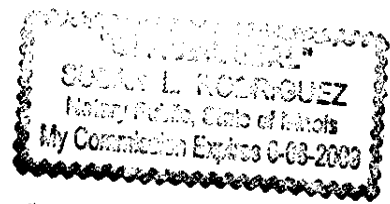 "OFFICIAL SEAL"
SUSAN L. RODRIGUEZ
Notary Public, State of Illinois
My Commission Expires